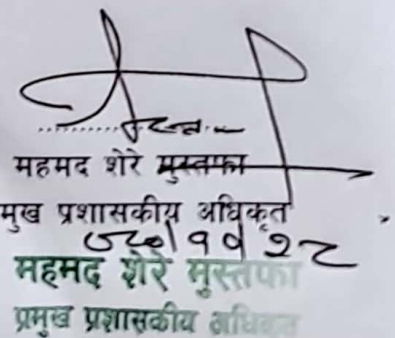 महमद शेरे मुस्तफा
मुख प्रशासकीय अधिकृत
महमद शेरे मुस्तफा
प्रमुख प्रशासकीय अधिकृत